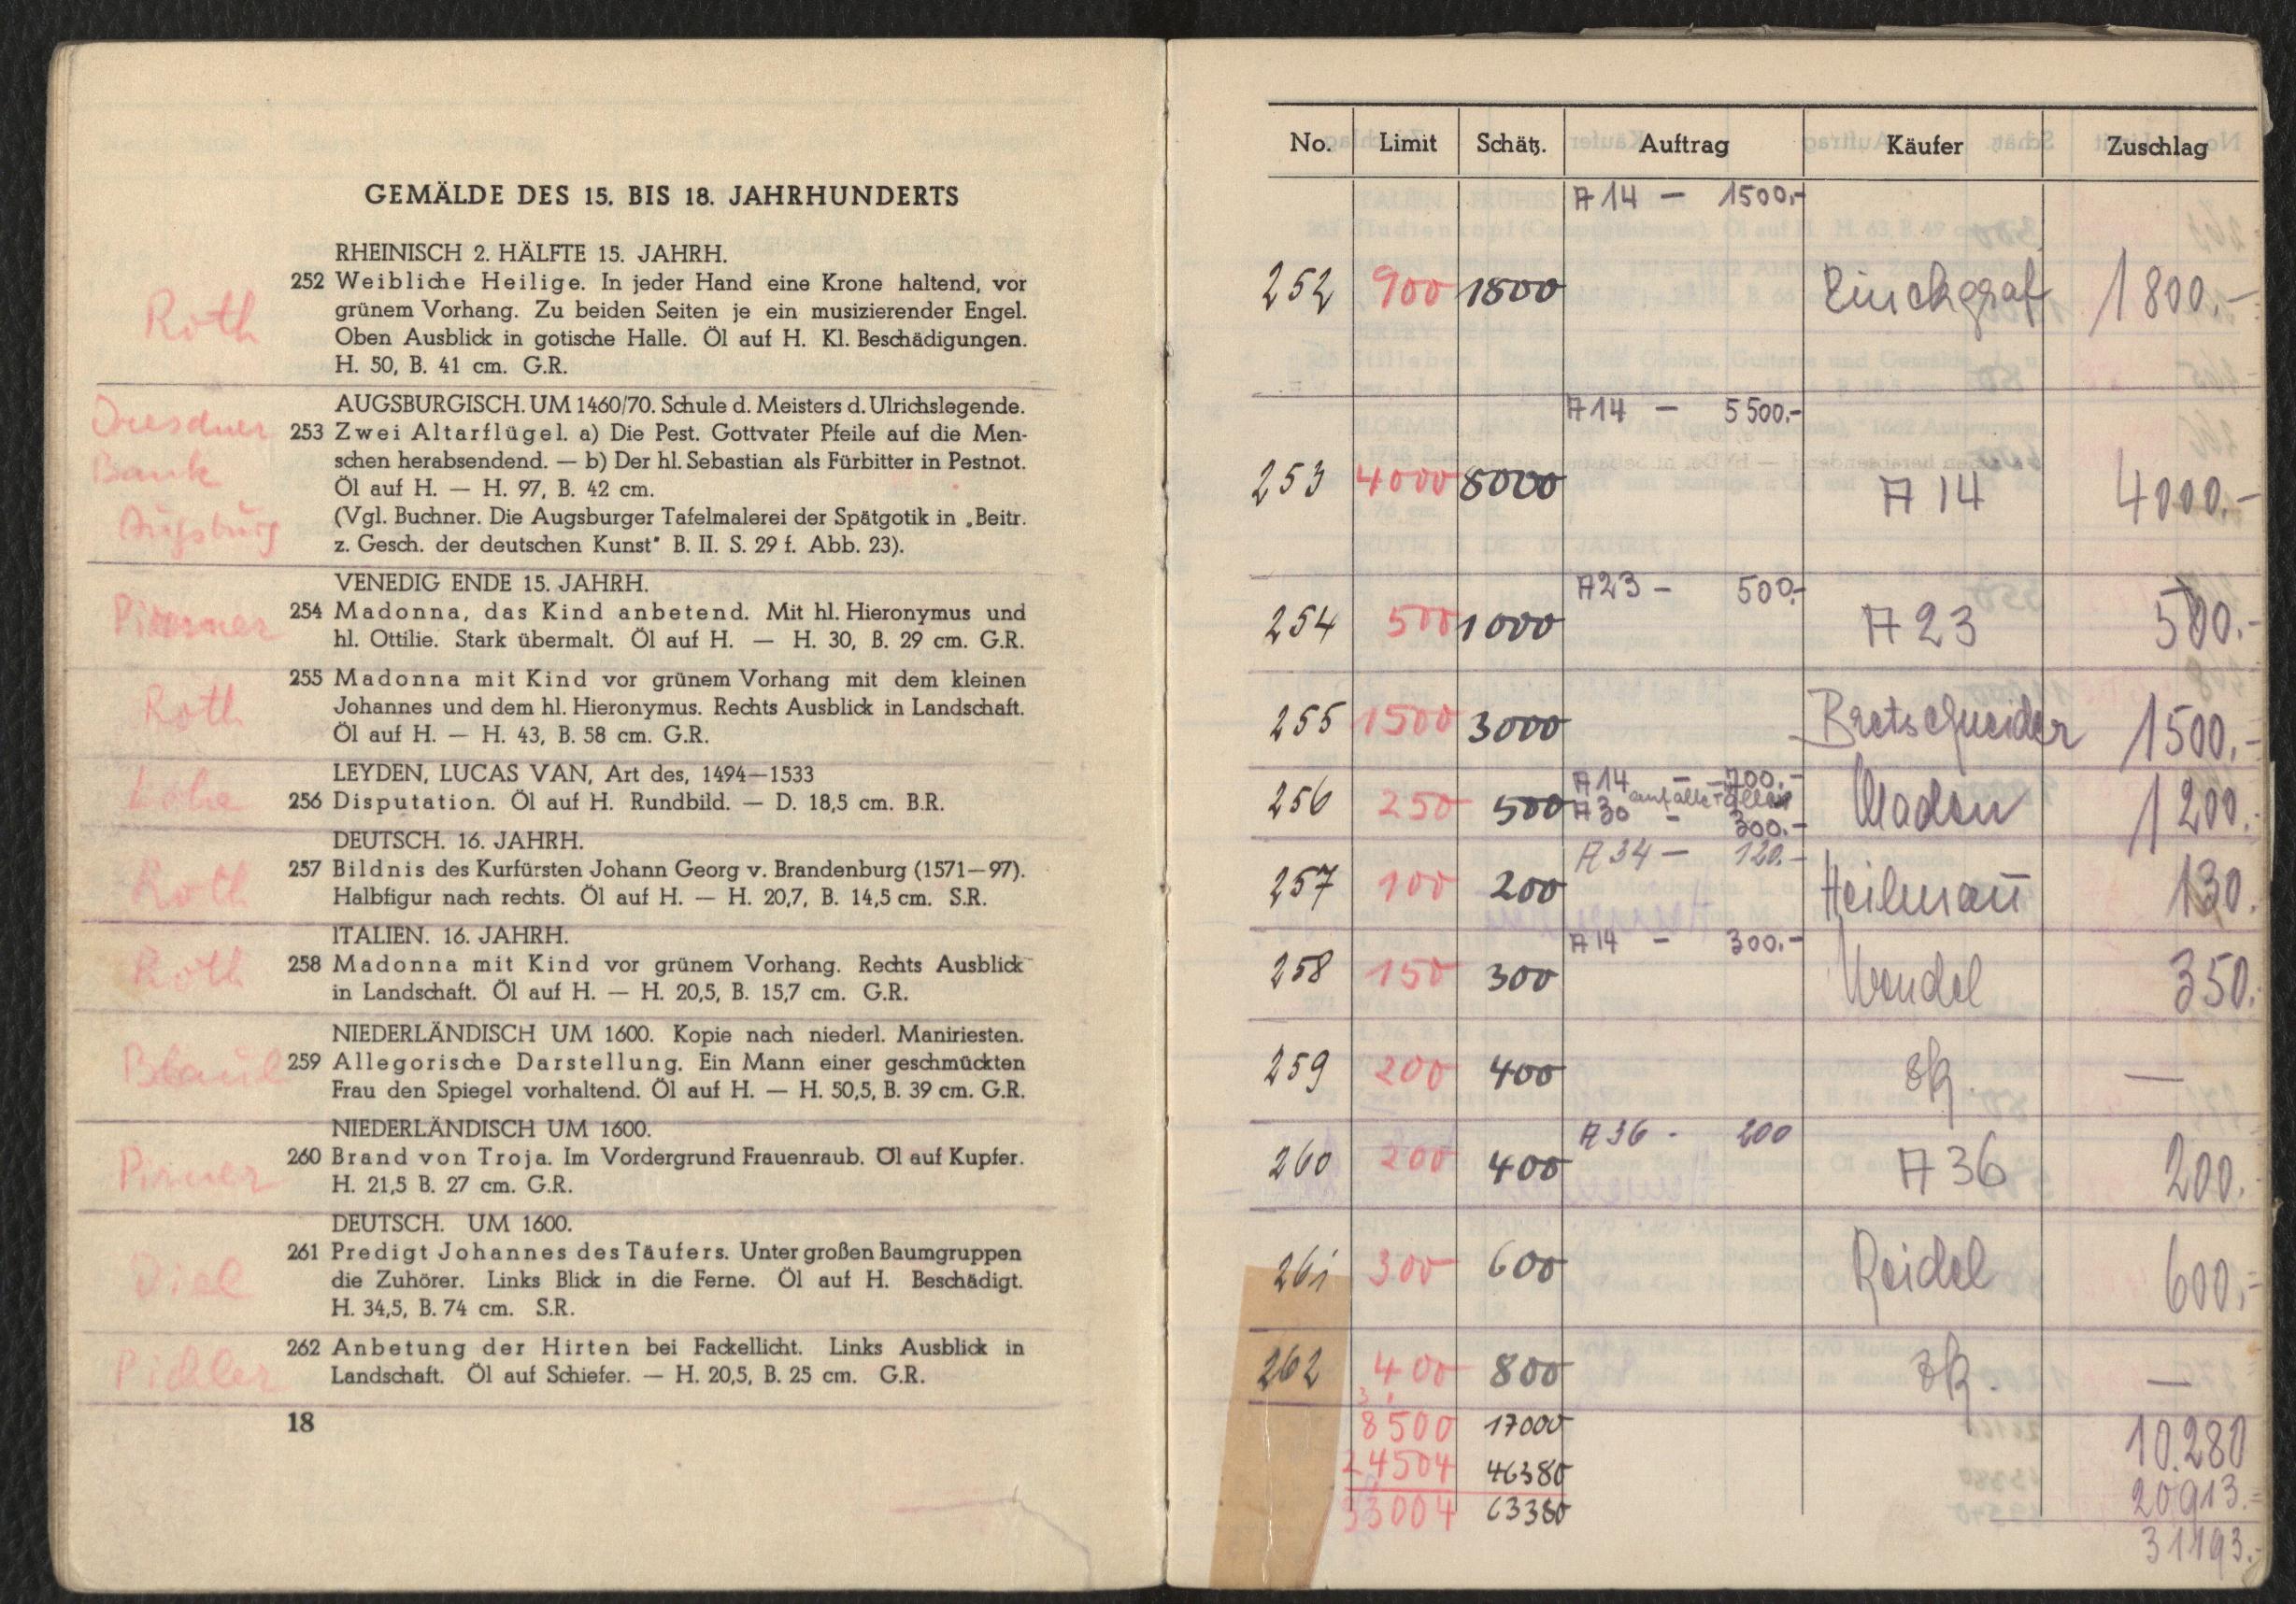 GEMÄLDE DES 15. BIS 18. JAHRHUNDERTS
RHEINISCH 2. HÄLFTE 15. JAHRH.
Roth
252 Weibliche Heilige. In jeder Hand eine Krone haltend, vor
grünem Vorhang. Zu beiden Seiten je ein musizierender Engel.
Oben Ausblick in gotische Halle. Öl auf H. Kl. Beschädigungen.
H. 50, B. 41 cm. G.R.
Dresdner
Bank
Augsburg
AUGSBURGISCH. UM 1460/70. Schule d. Meisters d. Ulrichslegende.
253 Zwei Altarflügel. a) Die Pest. Gottvater Pfeile auf die Men-
schen herabsendend. — b) Der hl. Sebastian als Fürbitter in Pestnot.
Öl auf H. — H. 97, B. 42 cm.
(Vgl. Buchner. Die Augsburger Tafelmalerei der Spätgotik in „Beitr.
z. Gesch. der deutschen Kunst" B. II. S. 29 f. Abb. 23).
VENEDIG ENDE 15. JAHRH.
254 Madonna, das Kind anbetend. Mit hl. Hieronymus und
hl. Ottilie. Stark übermalt. Öl auf H. — H. 30, B. 29 cm. G.R.
Roth
255 Madonna mit Kind vor grünem Vorhang mit dem kleinen
Johannes und dem hl. Hieronymus. Rechts Ausblick in Landschaft.
Öl auf H. — H. 43, B. 58 cm. G.R.
LEYDEN, LUCAS VAN, Art des, 1494—1533
256 Disputation. Öl auf H. Rundbild. — D. 18,5 cm. B.R.
DEUTSCH. 16. JAHRH.
Roth
257 Bildnis des Kurfürsten Johann Georg v. Brandenburg (1571—97).
Halbfigur nach rechts. Öl auf H. — H. 20,7, B. 14,5 cm. S.R.
ITALIEN. 16. JAHRH.
Roth
258 Madonna mit Kind vor grünem Vorhang. Rechts Ausblick
in Landschaft. Öl auf H. — H. 20,5, B. 15,7 cm. G.R.
NIEDERLÄNDISCH UM 1600. Kopie nach niederl. Maniriesten.
Blaul
259 Allegorische Darstellung. Ein Mann einer geschmückten
Frau den Spiegel vorhaltend. Öl auf H. — H. 50,5, B. 39 cm. G.R.
NIEDERLÄNDISCH UM 1600.
Pirner
260 Brand von Troja. Im Vordergrund Frauenraub. Öl auf Kupfer.
H. 21,5 B. 27 cm. G.R.
DEUTSCH. UM 1600.
Diel
261 Predigt Johannes des Täufers. Unter großen Baumgruppen
die Zuhörer. Links Blick in die Ferne. Öl auf H. Beschädigt.
H. 34,5, B. 74 cm. S.R.
Pichler
262 Anbetung der Hirten bei Fackellicht. Links Ausblick in
Landschaft. Öl auf Schiefer. — H. 20,5, B. 25 cm. G.R.
18
No. Limit Schätz. Auftrag Käufer Zuschlag
A 14 — 1500.-
252 900 1800 1800.-
A 14 — 5500.-
253 4000 8000 A 14 4000.-
A 23 — 500.-
254 500 1000 A 23 500.-
255 1500 3000 Bretschneider 1500.-
A 14 — 700.-
auf alle Fälle
256 250 500 1200.-
A 30 - 300.-
A 34 — 120.-
257 100 200 Heilmañ 130.
A 14 — 300.-
258 150 300 Wendel 350.-
259 200 400 —
A 36 - 200
260 200 400 A 36 200.-
261 300 600 Reidel 600.-
262 400 800 —
8500 17000 10.280
24504 46380 20913.-
33004 63380 31193.-